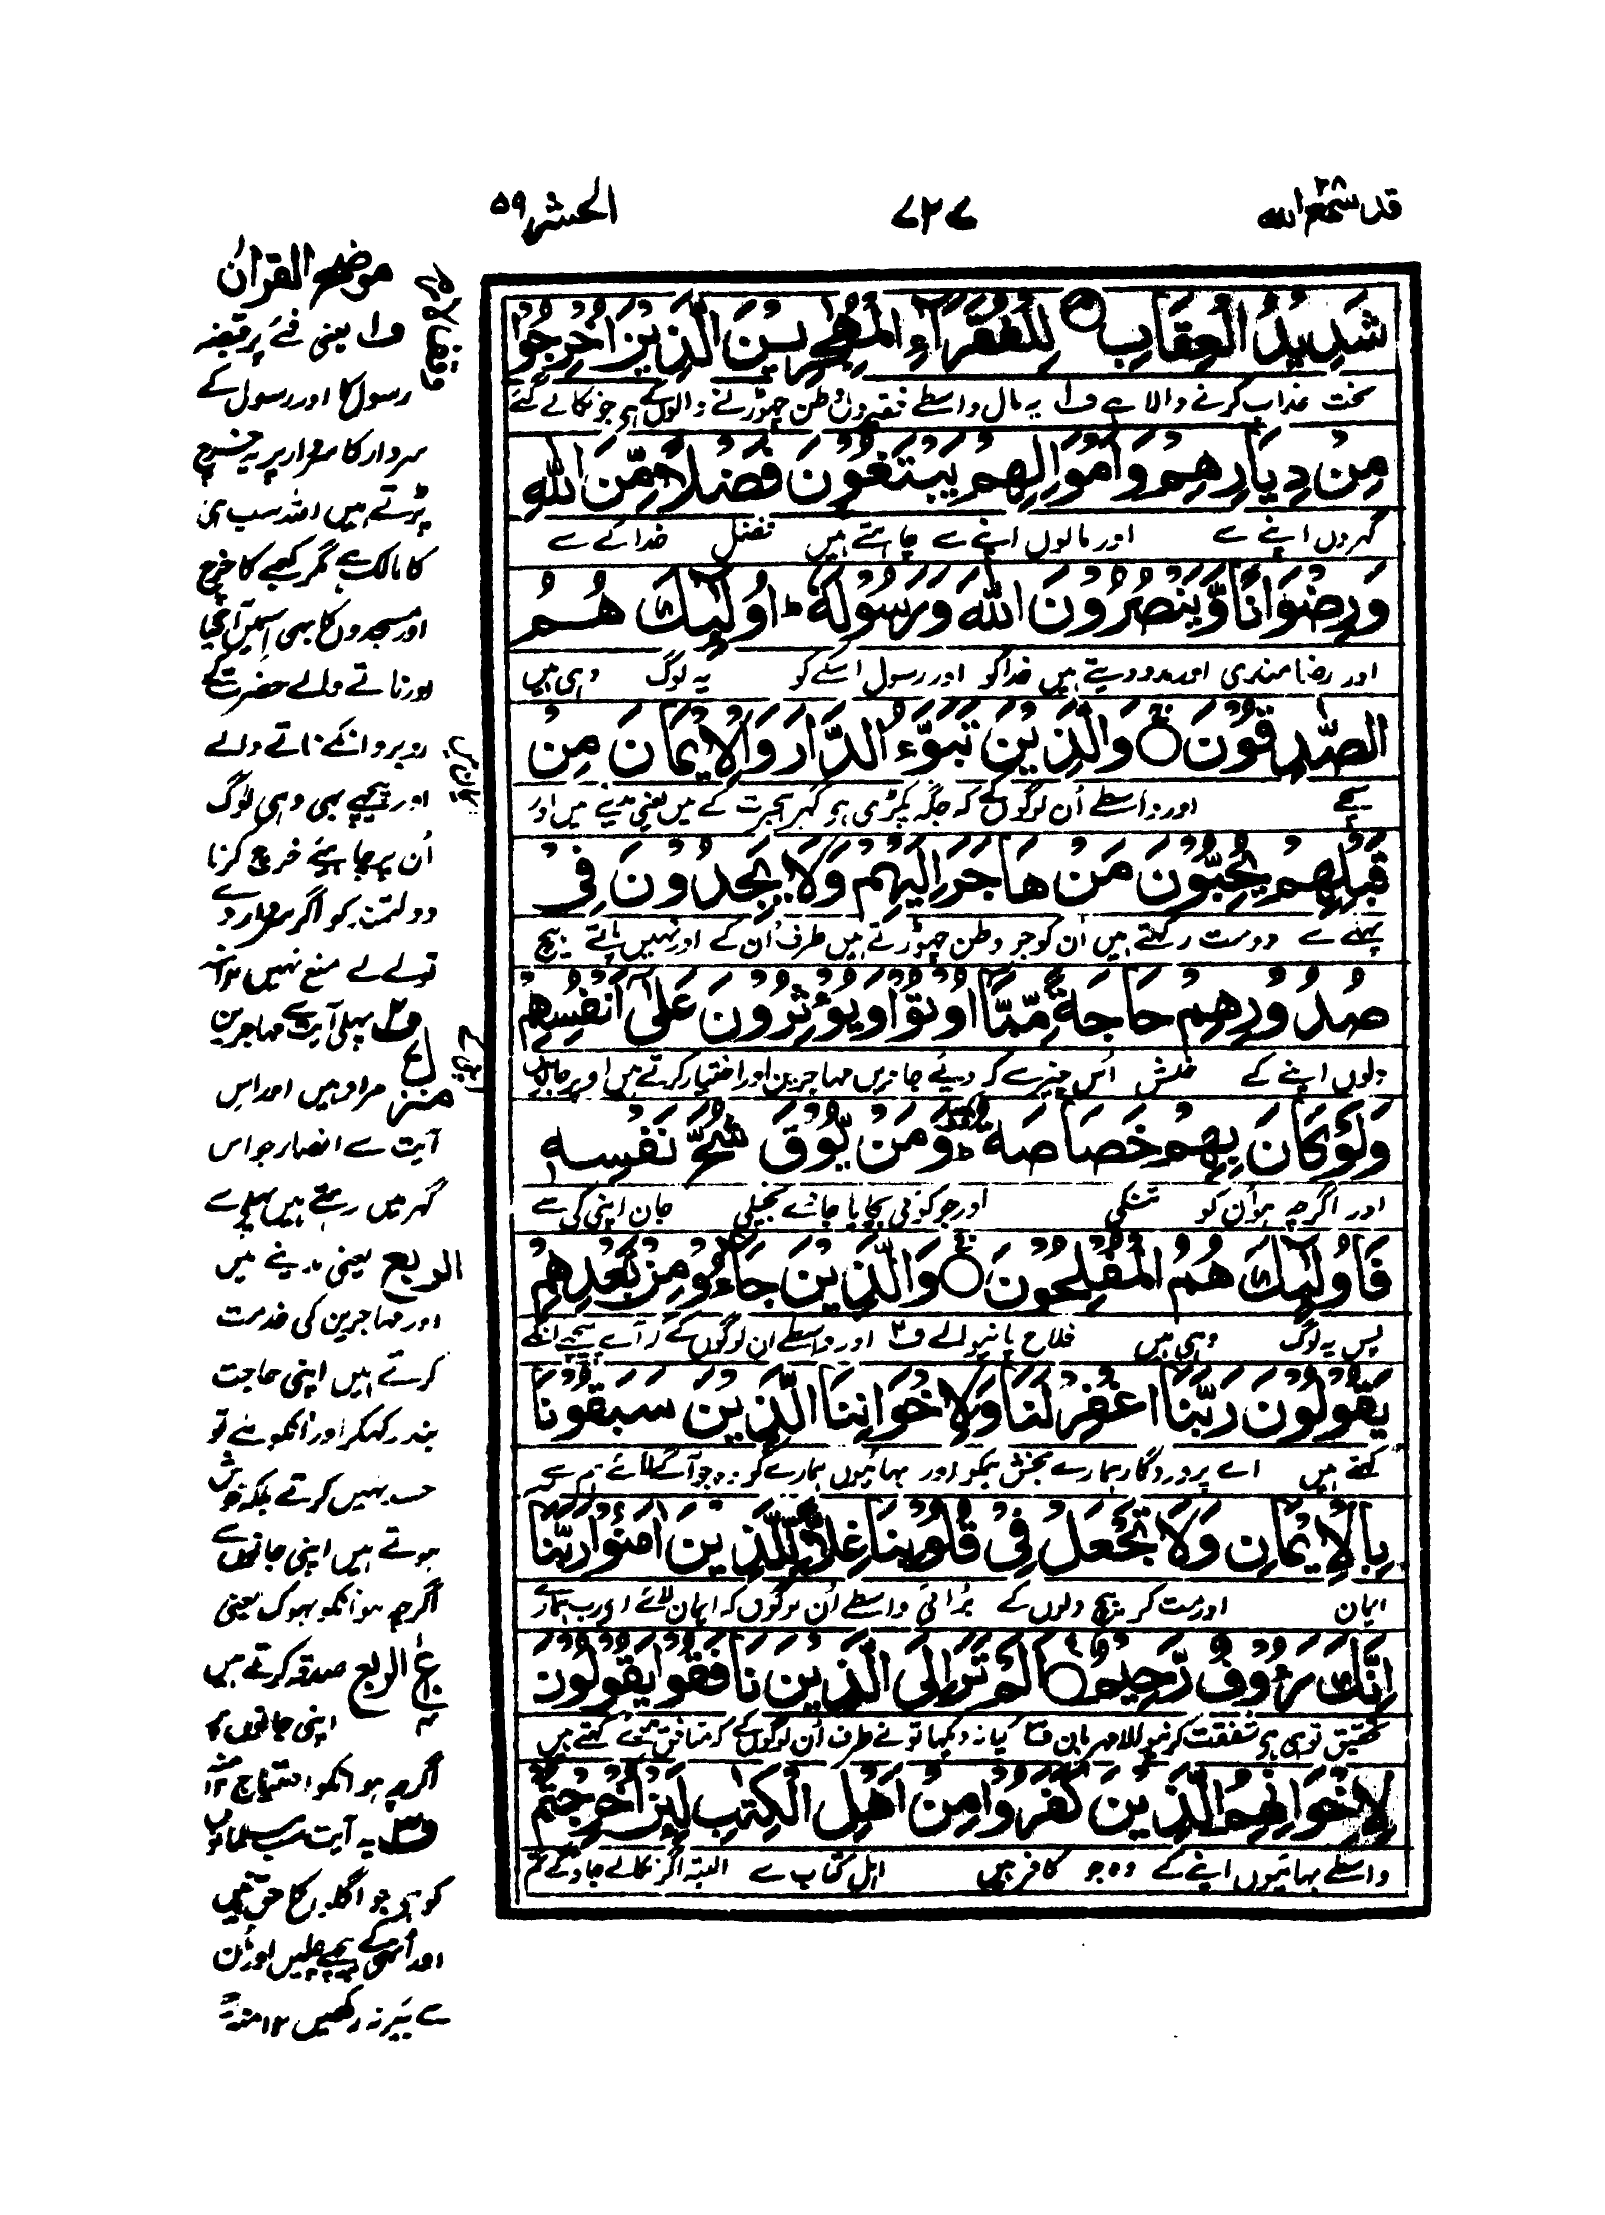 قد سمع الله ۲۸
۷۲۷
الحشر ۵۹
شَدِيدُ الْعِقَابِ لِلْفُقَرَآءِ الْمُهٰجِرِيْنَ الَّذِيْنَ اُخْرِجُوْا
سخت عذاب کرنے والا ہے ف۱ یہ مال واسطے فقیروں وطن چھوڑنے والوں کے ہی جو نکالے گئے
مِنْ دِيَارِهِمْ وَاَمْوَالِهِمْ يَبْتَغُوْنَ فَضْلًا مِّنَ اللّٰهِ
گھروں اپنے سے اور مالوں اپنے سے چاہتے ہیں فضل خدا کے سے
وَرِضْوَانًا وَّيَنْصُرُوْنَ اللّٰهَ وَرَسُوْلَهٗ ط اُولٰٓئِكَ هُمُ
اور رضا مندی اور مدد دیتے ہیں خدا کو اور رسول اسکے کو یہ لوگ وہی ہیں
الصّٰدِقُوْنَ وَالَّذِيْنَ تَبَوَّءُ الدَّارَ وَالْاِيْمَانَ مِنْ
سچے اور واسطے اُن لوگوں کے کہ جگہ پکڑی ہو گھر ہجرت کے میں یعنی مدینے میں اور
قَبْلِهِمْ يُحِبُّوْنَ مَنْ هَاجَرَ اِلَيْهِمْ وَلَا يَجِدُوْنَ فِيْ
پہلے سے دوست رکھتے ہیں اُن کو جو وطن چھوڑتے ہیں طرف اُن کے اور نہیں پاتے بیچ
صُدُوْرِهِمْ حَاجَةً مِّمَّا اُوْتُوْا وَيُؤْثِرُوْنَ عَلٰٓى اَنْفُسِهِمْ
دلوں اپنے کے خلش اُس چیز سے کہ دیئے جاویں مہاجرین اور اختیار کرتے ہیں اوپر جانوں
وَلَوْ كَانَ بِهِمْ خَصَاصَةٌ ط وَمَنْ يُّوْقَ شُحَّ نَفْسِهٖ
اور اگرچہ ہو اُن کو تنگی اور جو کوئی بچایا جائے بخیلی جان اپنی کی سے
فَاُولٰٓئِكَ هُمُ الْمُفْلِحُوْنَ وَالَّذِيْنَ جَآءُوْ مِنْۢ بَعْدِهِمْ
پس یہ لوگ وہی ہیں فلاح پانیوالے ف۲ اور واسطے ان لوگوں کے کہ آئے پیچھے انکے
يَقُوْلُوْنَ رَبَّنَا اغْفِرْ لَنَا وَلِاِخْوَانِنَا الَّذِيْنَ سَبَقُوْنَا
کہتے ہیں اے پروردگار ہمارے بخش ہمکو اور بھائیوں ہمارے کو جو آگے لائے ہم سے
بِالْاِيْمَانِ وَلَا تَجْعَلْ فِيْ قُلُوْبِنَا غِلًّا لِّلَّذِيْنَ اٰمَنُوْا رَبَّنَآ
ایمان اور مت کر بیچ دلوں کے بُرائی واسطے اُن لوگوں کہ ایمان لائے اے رب ہمارے
اِنَّكَ رَءُوْفٌ رَّحِيْمٌ اَلَمْ تَرَ اِلَى الَّذِيْنَ نَافَقُوْا يَقُوْلُوْنَ
تحقیق تو ہی ہے شفقت کرنیوالا مہربان ف۳ کیا نہ دیکھا تونے طرف اُن لوگوں کے کہ منافق ہوئے کہتے ہیں
لِاِخْوَانِهِمُ الَّذِيْنَ كَفَرُوْا مِنْ اَهْلِ الْكِتٰبِ لَئِنْ اُخْرِجْتُمْ
واسطے بھائیوں اپنے کے وہ جو کافر ہیں اہل کتاب سے البتہ اگر نکالے جاؤ گے تم
موضح القرآن
ف۱ یعنی فئے پر قبضہ
رسول کا اور رسول کے
سردار کا سردار پر یہ خرچ
پڑتے ہیں اللہ سب ہی
کا مالک ہے مگر کعبے کا خرچ
اور مسجدوں کا بھی اسمیں آگیا
اور ناتے والے حضرت کے
روبرو انکے ناتے والے
اور پیچھے بھی وہی لوگ
اُن پر چاہیئے خرچ کرنا
دولتمند کو اگر سردار دے
تو لے لے منع نہیں ۱۲منہ
ف۲ پہلی آیت سے مہاجرین
منزل مراد ہیں اور اس
آیت سے انصار جو اس
گھر میں رہتے ہیں پہلے سے
الربع یعنی مدینے میں
اور مہاجرین کی خدمت
کرتے ہیں اپنی حاجت
بند رکھکر اور انکو ملے تو
حسد نہیں کرتے بلکہ خوش
ہوتے ہیں اپنی جانوں سے
اگرچہ ہو انکو بھوک یعنی
الربع صدقہ کرتے ہیں
اپنی جانوں کا
اگرچہ ہو انکو احتیاج ۱۲منہ
ف۳ یہ آیت سب مسلمانوں
کو ہی جو اگلوں کا حق مانیں
اور اُنہی کے پیچھے چلیں اور اُن
سے بیر نہ رکھیں ۱۲منہ